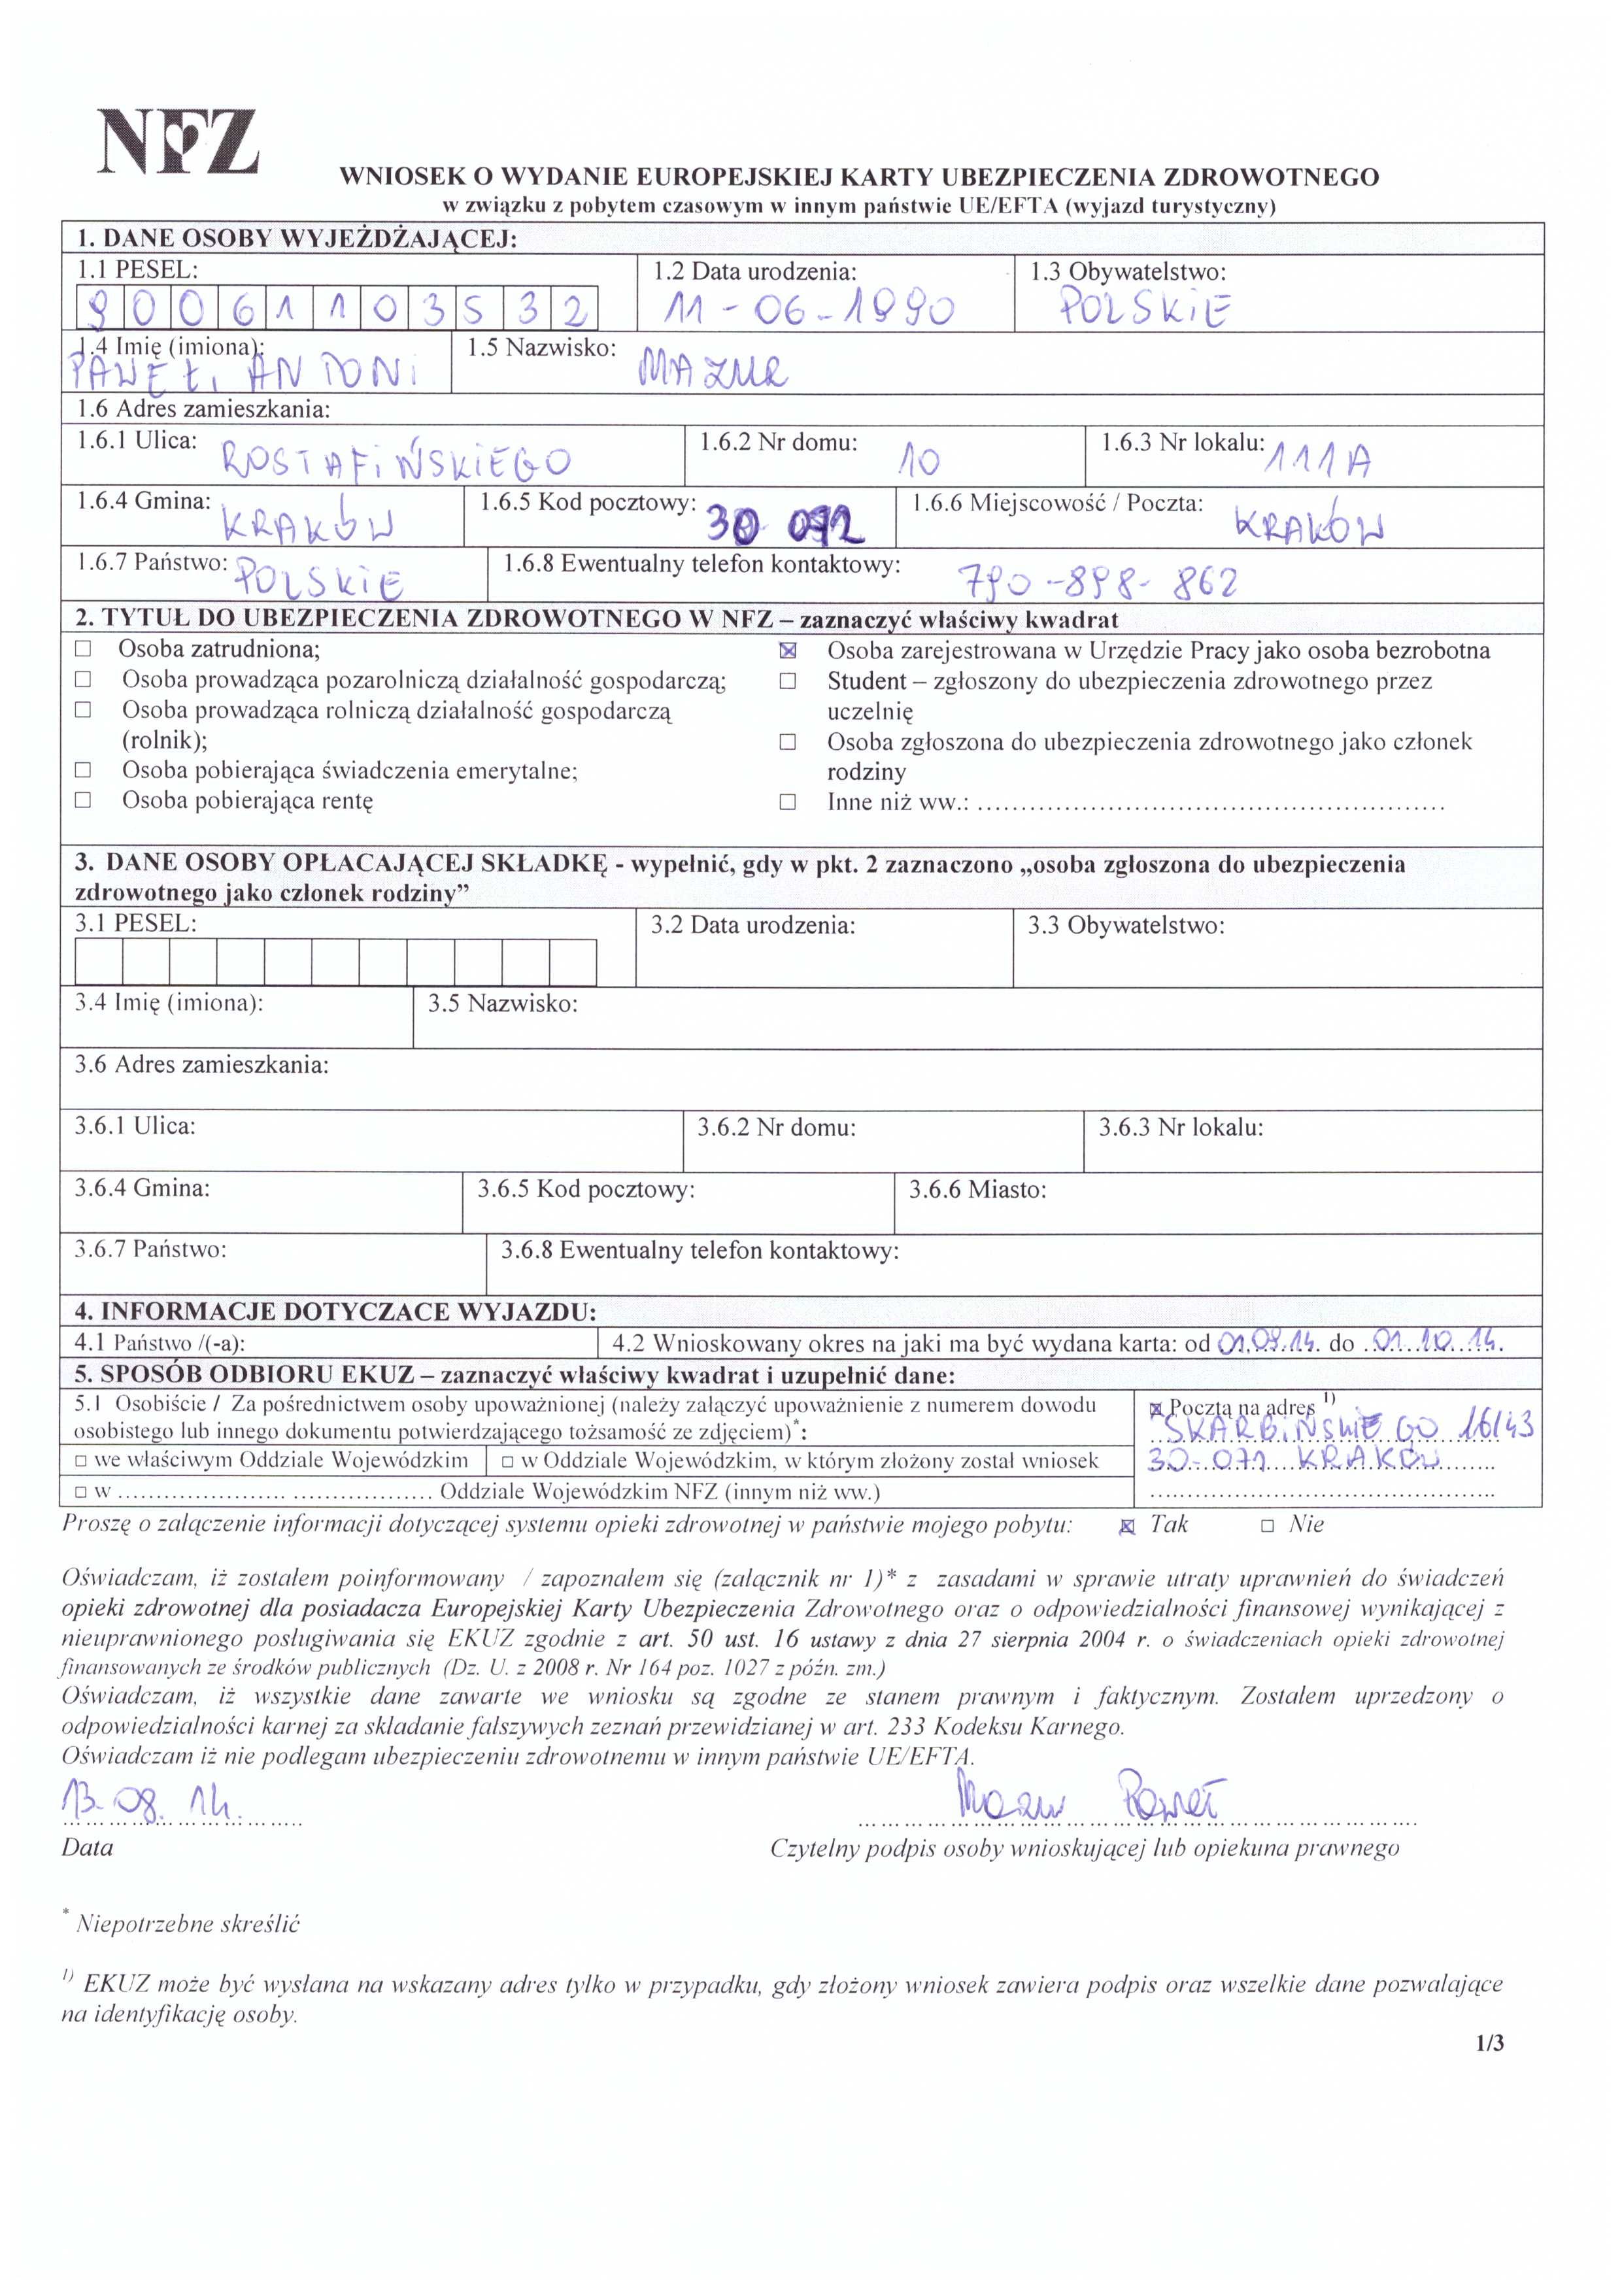 NFZ
WNIOSEK O WYDANIE EUROPEJSKIEJ KARTY UBEZPIECZENIA ZDROWOTNEGO
w związku z pobytem czasowym w innym państwie UE/EFTA (wyjazd turystyczny)
1. DANE OSOBY WYJEŻDŻAJĄCEJ:
1.1 PESEL: 1.2 Data urodzenia: 1.3 Obywatelstwo:
90061103532 11-06-1990 POLSKIE
1.4 Imię (imiona): 1.5 Nazwisko: MAZUR
PAWEŁ, ANTONI
1.6 Adres zamieszkania:
1.6.1 Ulica: ROSTAFIŃSKIEGO 1.6.2 Nr domu: 10 1.6.3 Nr lokalu: 111A
1.6.4 Gmina: KRAKÓW 1.6.5 Kod pocztowy: 30 1.6.6 Miejscowość / Poczta: KRAKÓW
1.6.7 Państwo: POLSKIE 1.6.8 Ewentualny telefon kontaktowy: 790-898-862
2. TYTUŁ DO UBEZPIECZENIA ZDROWOTNEGO W NFZ – zaznaczyć właściwy kwadrat
☐ Osoba zatrudniona; ☒ Osoba zarejestrowana w Urzędzie Pracy jako osoba bezrobotna
☐ Osoba prowadząca pozarolniczą działalność gospodarczą; ☐ Student – zgłoszony do ubezpieczenia zdrowotnego przez
☐ Osoba prowadząca rolniczą działalność gospodarczą uczelnię
(rolnik); ☐ Osoba zgłoszona do ubezpieczenia zdrowotnego jako członek
☐ Osoba pobierająca świadczenia emerytalne; rodziny
☐ Osoba pobierająca rentę ☐ Inne niż ww.: ....................................................
3. DANE OSOBY OPŁACAJĄCEJ SKŁADKĘ - wypełnić, gdy w pkt. 2 zaznaczono „osoba zgłoszona do ubezpieczenia
zdrowotnego jako członek rodziny”
3.1 PESEL: 3.2 Data urodzenia: 3.3 Obywatelstwo:
3.4 Imię (imiona): 3.5 Nazwisko:
3.6 Adres zamieszkania:
3.6.1 Ulica: 3.6.2 Nr domu: 3.6.3 Nr lokalu:
3.6.4 Gmina: 3.6.5 Kod pocztowy: 3.6.6 Miasto:
3.6.7 Państwo: 3.6.8 Ewentualny telefon kontaktowy:
4. INFORMACJE DOTYCZACE WYJAZDU:
4.1 Państwo /(-a): 4.2 Wnioskowany okres na jaki ma być wydana karta: od 01.09.14. do 01.10.14.
5. SPOSÓB ODBIORU EKUZ – zaznaczyć właściwy kwadrat i uzupełnić dane:
5.1 Osobiście / Za pośrednictwem osoby upoważnionej (należy załączyć upoważnienie z numerem dowodu
osobistego lub innego dokumentu potwierdzającego tożsamość ze zdjęciem)*:
☒ Pocztą na adres 1)
SKARBIŃSKIEGO 16/43
☐ we właściwym Oddziale Wojewódzkim ☐ w Oddziale Wojewódzkim, w którym złożony został wniosek
30-071 KRAKÓW
☐ w ....................... ................... Oddziale Wojewódzkim NFZ (innym niż ww.)
Proszę o załączenie informacji dotyczącej systemu opieki zdrowotnej w państwie mojego pobytu: ☒ Tak ☐ Nie
Oświadczam, iż zostałem poinformowany / zapoznałem się (załącznik nr 1)* z zasadami w sprawie utraty uprawnień do świadczeń
opieki zdrowotnej dla posiadacza Europejskiej Karty Ubezpieczenia Zdrowotnego oraz o odpowiedzialności finansowej wynikającej z
nieuprawnionego posługiwania się EKUZ zgodnie z art. 50 ust. 16 ustawy z dnia 27 sierpnia 2004 r. o świadczeniach opieki zdrowotnej
finansowanych ze środków publicznych (Dz. U. z 2008 r. Nr 164 poz. 1027 z późn. zm.)
Oświadczam, iż wszystkie dane zawarte we wniosku są zgodne ze stanem prawnym i faktycznym. Zostałem uprzedzony o
odpowiedzialności karnej za składanie fałszywych zeznań przewidzianej w art. 233 Kodeksu Karnego.
Oświadczam iż nie podlegam ubezpieczeniu zdrowotnemu w innym państwie UE/EFTA.
13.08.14. Mazur Paweł
Data Czytelny podpis osoby wnioskującej lub opiekuna prawnego
* Niepotrzebne skreślić
1) EKUZ może być wysłana na wskazany adres tylko w przypadku, gdy złożony wniosek zawiera podpis oraz wszelkie dane pozwalające
na identyfikację osoby.
1/3